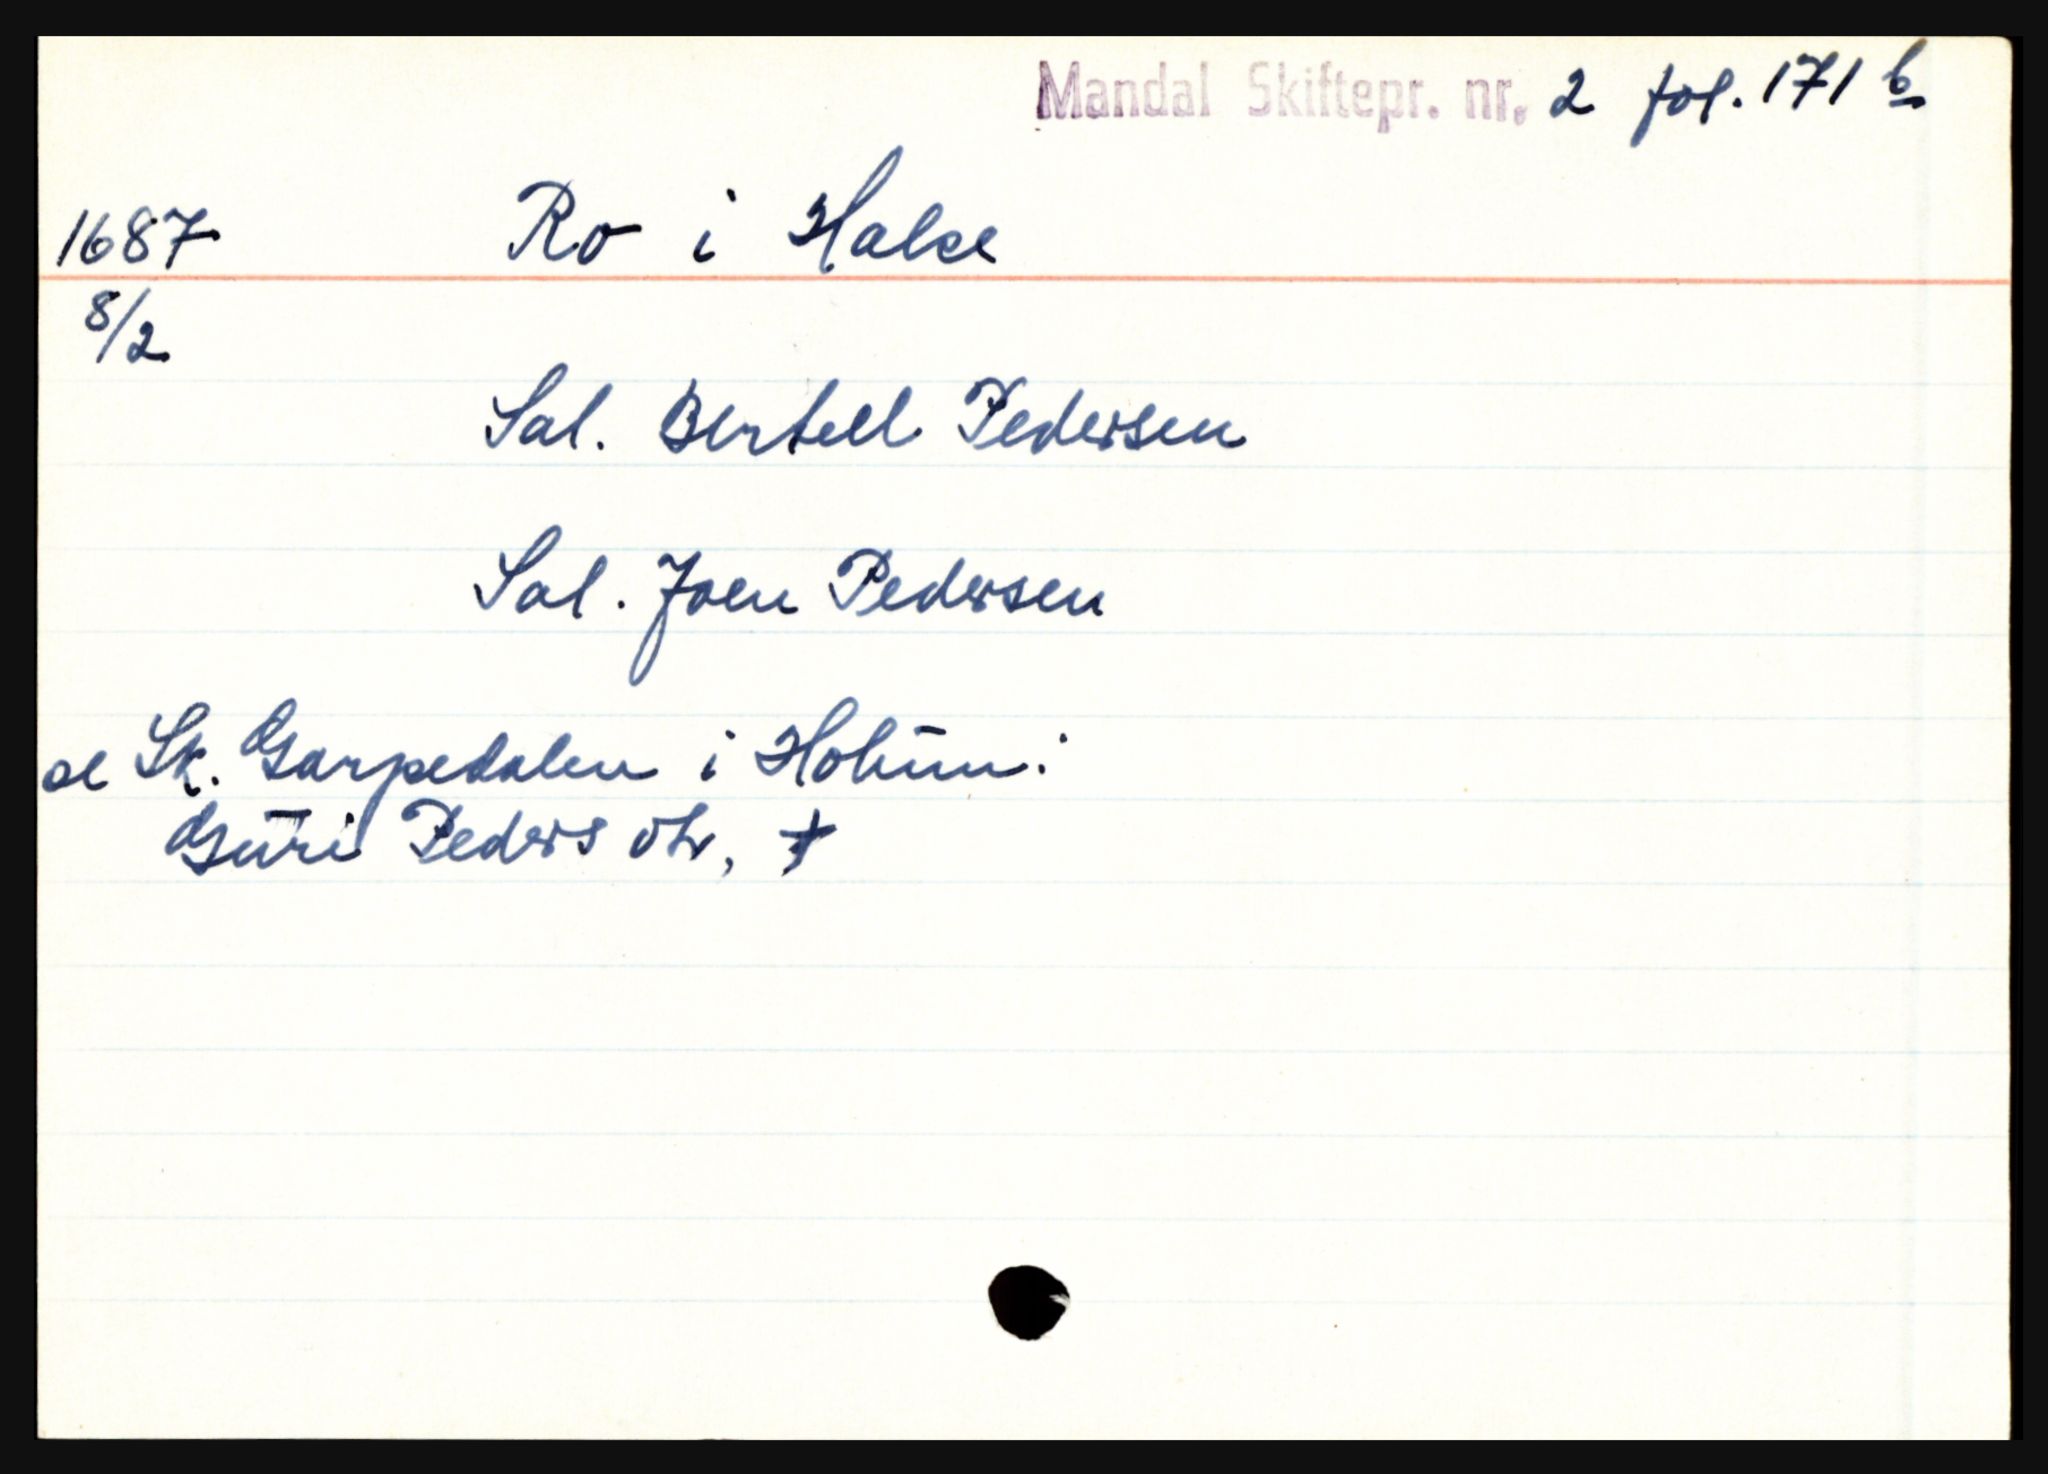 Mandal Skiftepr. nr. 2 fol. 171 b
1687 Ro i Halse
8/2
Sal. Bertell Pedersen
Sal. Joen Pedersen
se Sk. Garpedalen i Holum:
Guri Peders dtr, †